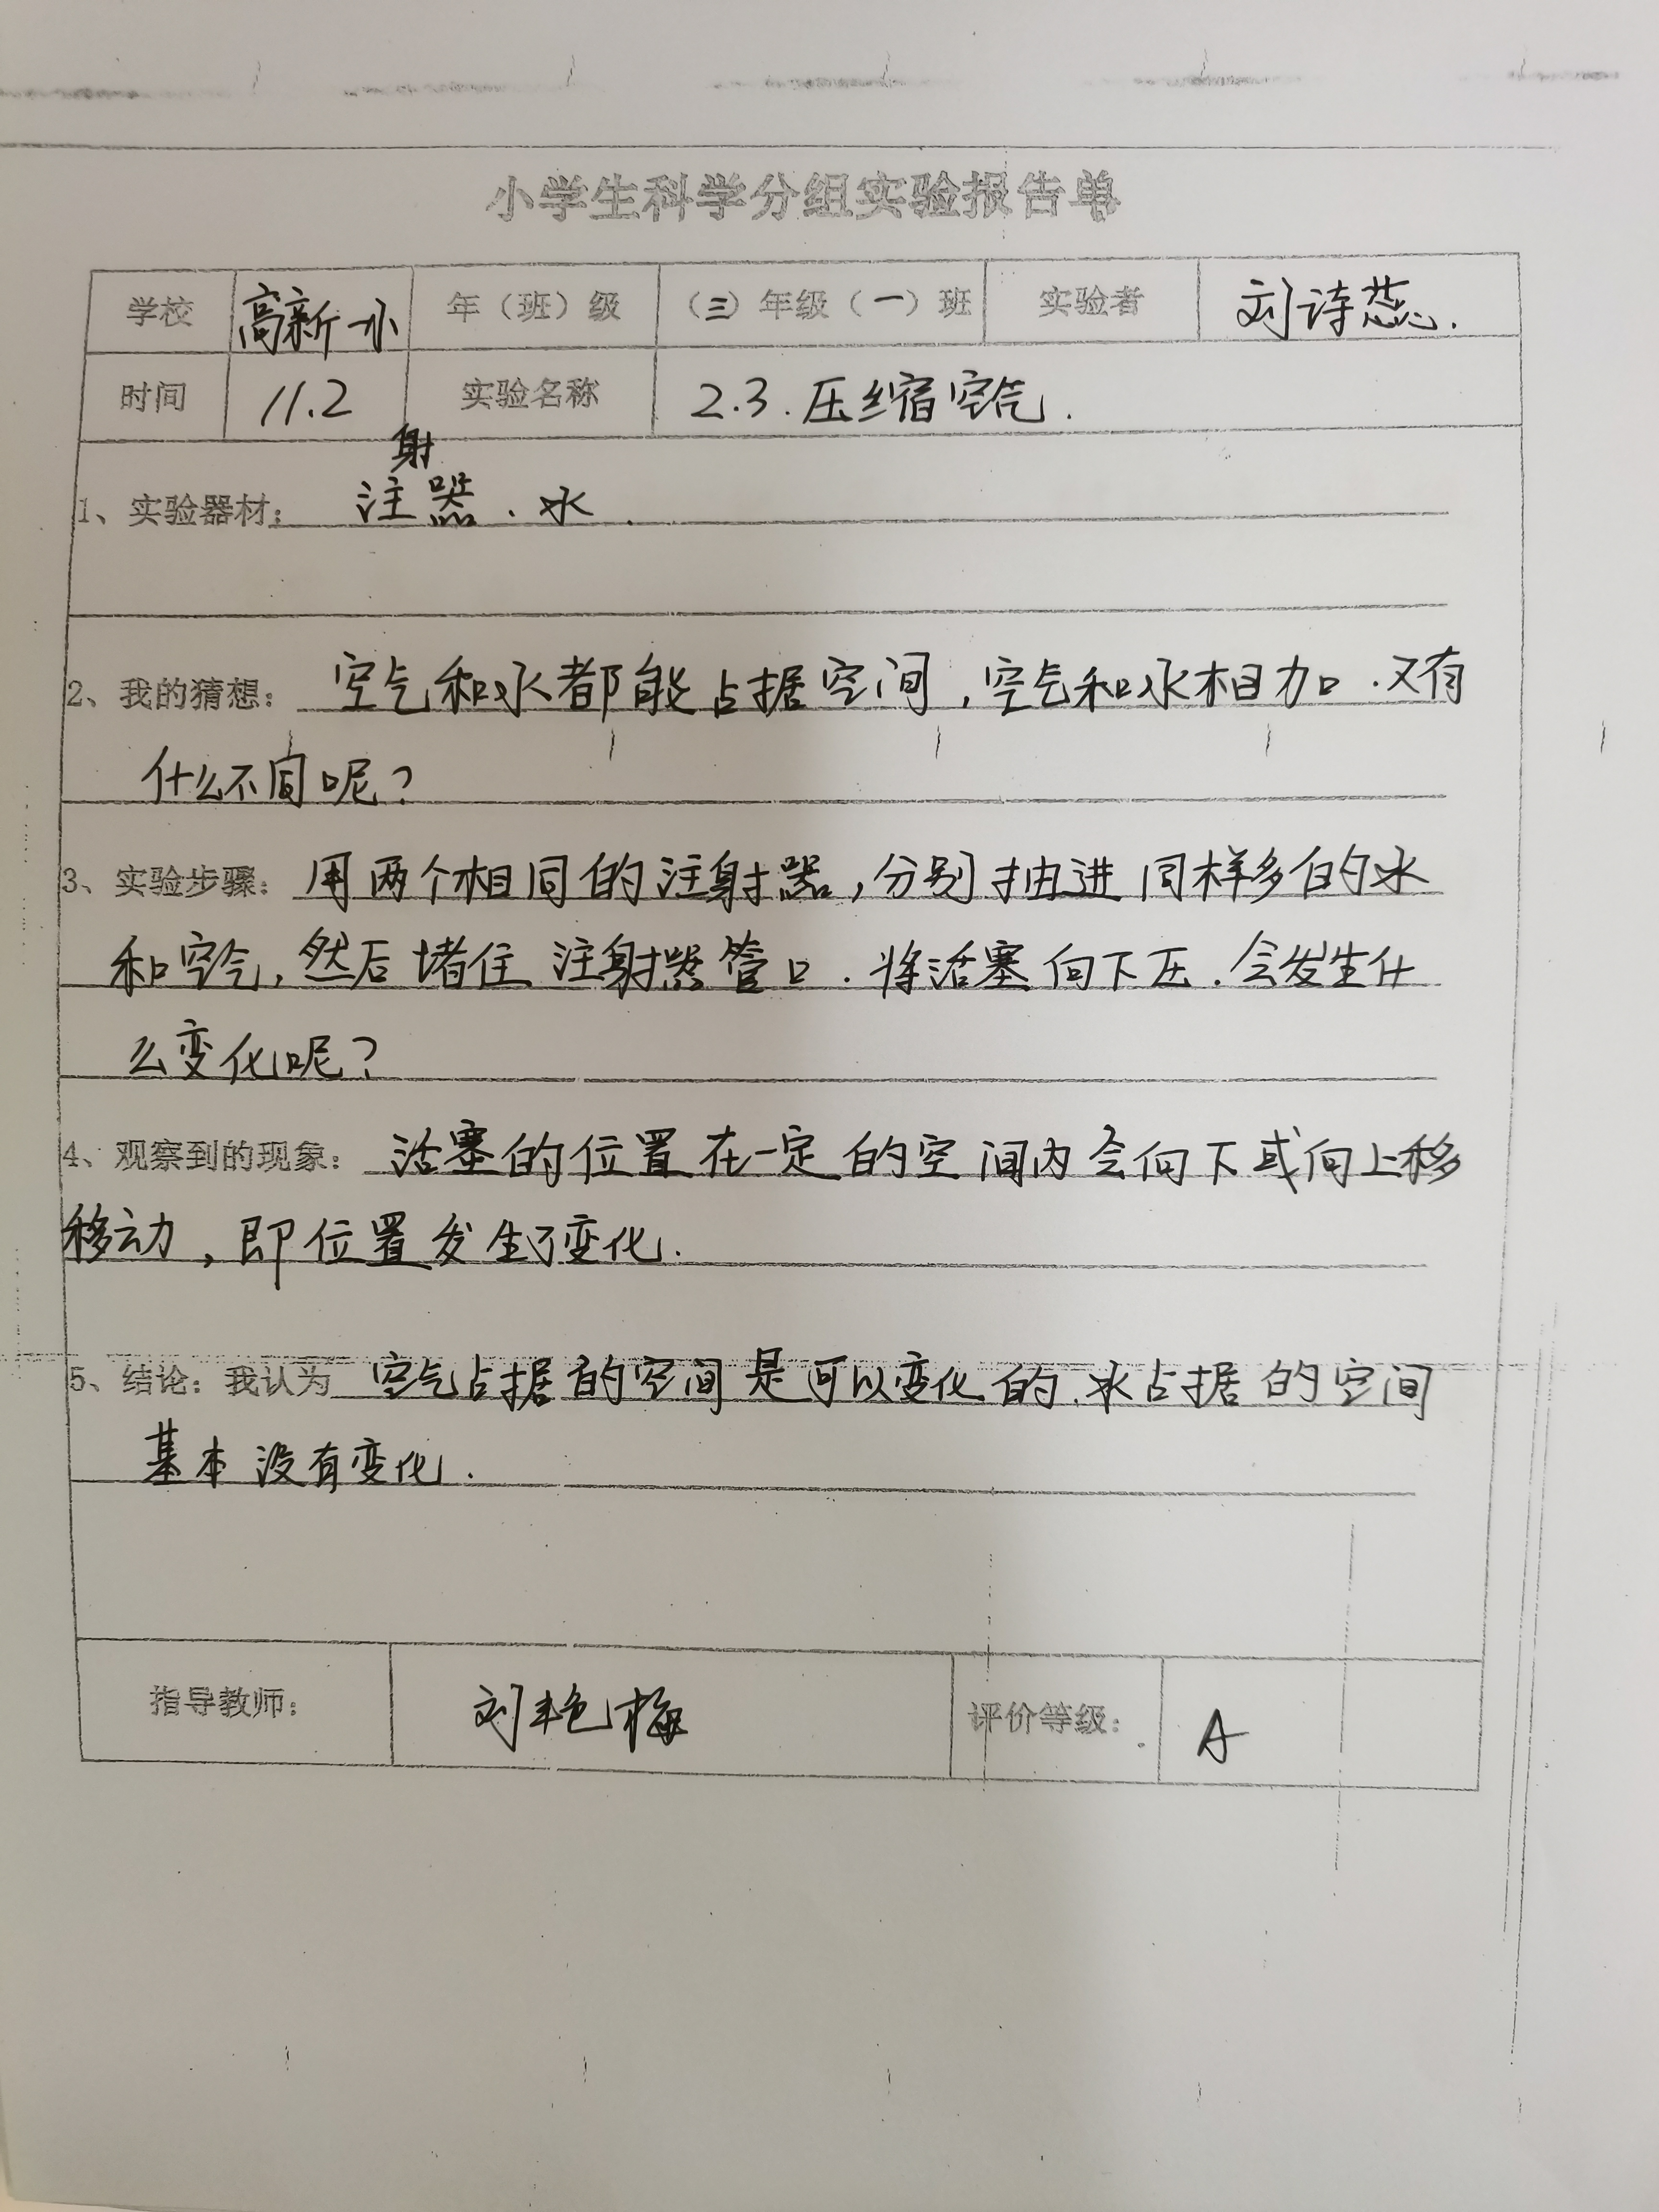 小学生科学分组实验报告单
学校 高新一小 年（班）级 （三）年级（一）班 实验者 刘诗蕊.
时间 11.2 实验名称 2.3.压缩空气.
1、实验器材： 注射器.水.
2、我的猜想： 空气和水都能占据空间,空气和水相加.又有
什么不同呢?
3、实验步骤： 用两个相同的注射器,分别抽进同样多的水
和空气,然后堵住注射器管口.将活塞向下压.会发生什
么变化呢?
4、观察到的现象： 活塞的位置在一定的空间内会向下或向上移
移动,即位置发生了变化.
5、结论：我认为 空气占据的空间是可以变化的.水占据的空间
基本没有变化.
指导教师： 刘艳梅 评价等级： A